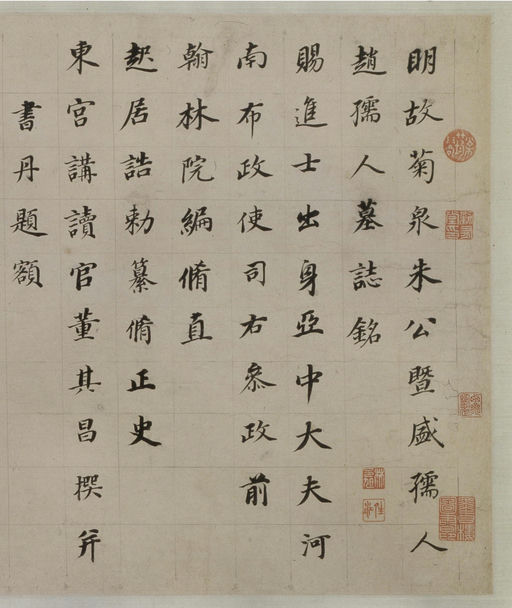 明故菊泉朱公暨盛孺人
趙孺人墓誌銘
賜進士出身亞中大夫河
南布政使司右叅政前
翰林院編脩直
起居誥勅纂脩正史
東宮講讀官董其昌撰并
書丹題額